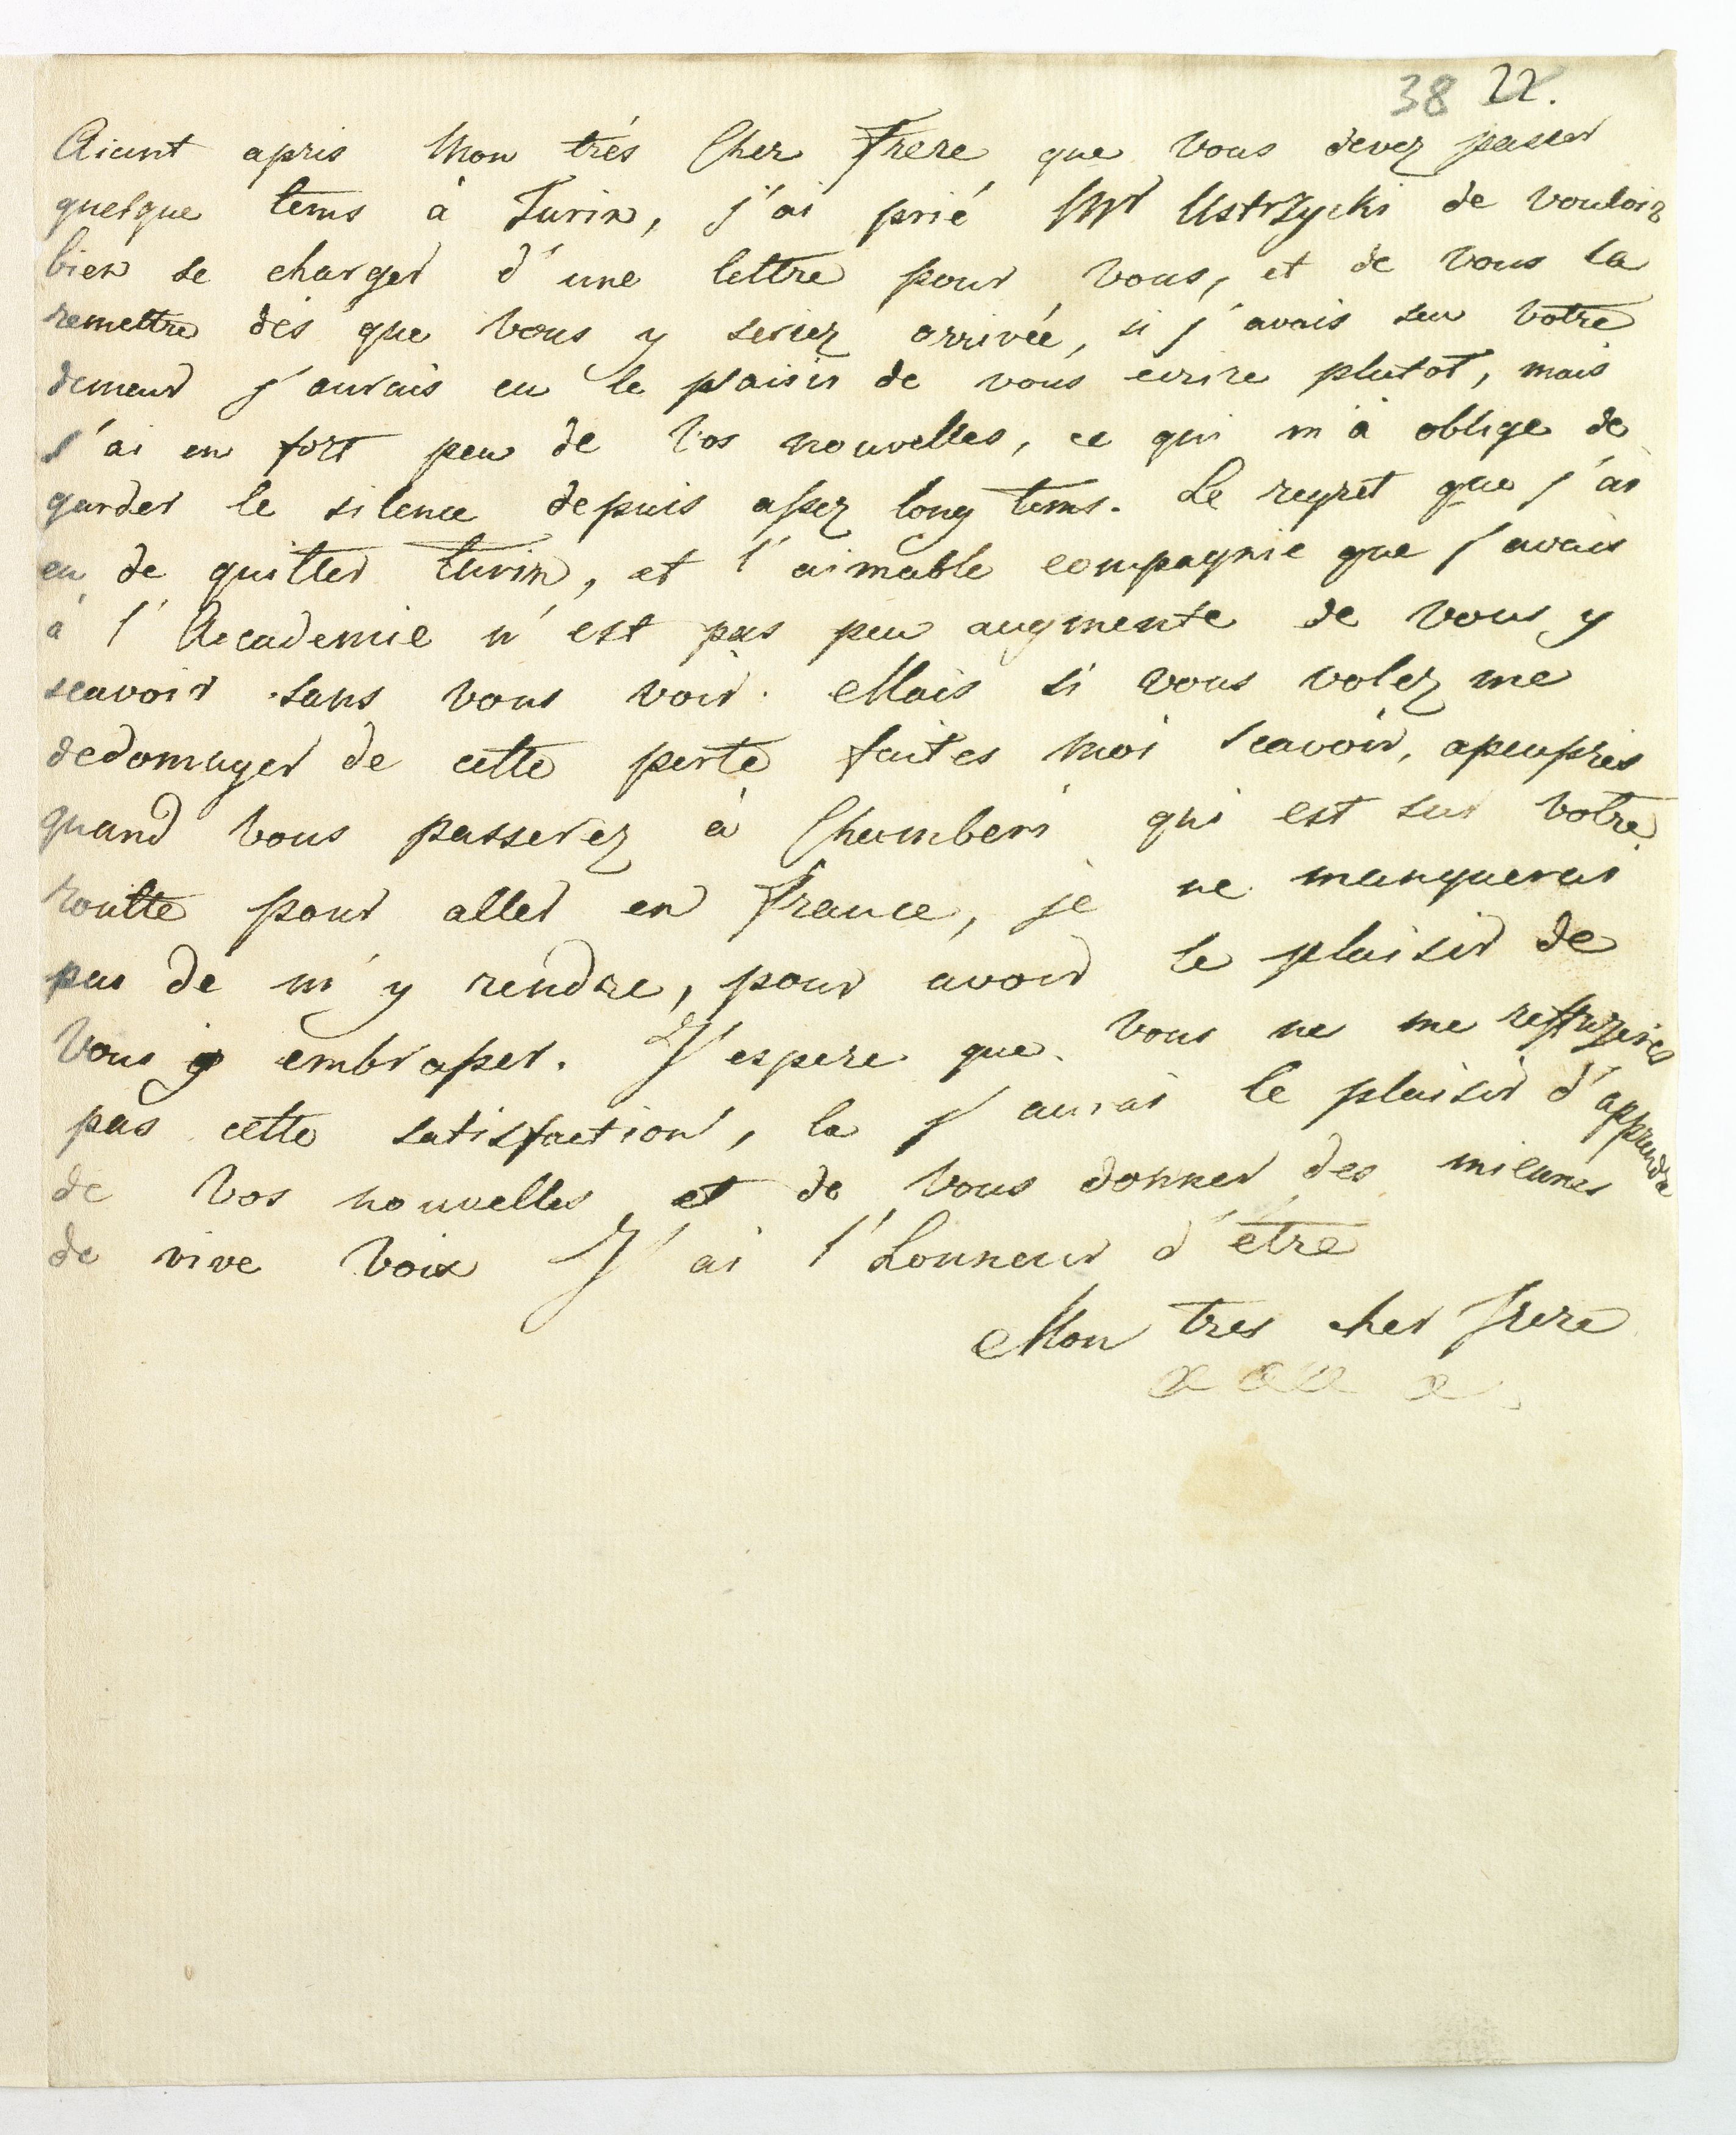 38 22.
Aiant apris Mon trés Cher Frere que vous devez passer
quelque tems à Turin, j'ai prié Mr Ustrzycki de vouloir
bien se charger d'une lettre pour vous, et de vous la
remettre dès que vous y seriez arrivée, si j'avais seu votre
demeur j'aurais eu le plaisir de vous ecrire plutot, mais
j'ai eu fort peu de vos nouvelles, ce qui m'à oblige de
garder le silence depuis assez long tems. Le regret que j'ai
eu de quitter Turin, et l'aimable compagnie que j'avais
à l'Accademie n'est pas peu augmente de vous y
scavoir sans vous voir. Mais si vous volez me
dedomager de cette perte faites moi scavoir, apeuprès
quand vous passerez à Chamberi qui est sur votre
routte pour aller en France, je ne manquerai
pas de m'y rendre, pour avoir le plaisir de
vous y embrasser. J'espere que vous ne me reffuzeres
pas cette satisfaction, la j'aurai le plaisir d'apprendre
de vos nouvelles et de vous donner des miennes
de vive voix J'ai l'honneur d'être
Mon tres cher frere